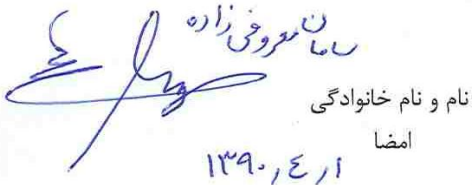 سامان معروفی زاده
نام و نام خانوادگی
امضا
۱۳۹۰,٤,۱